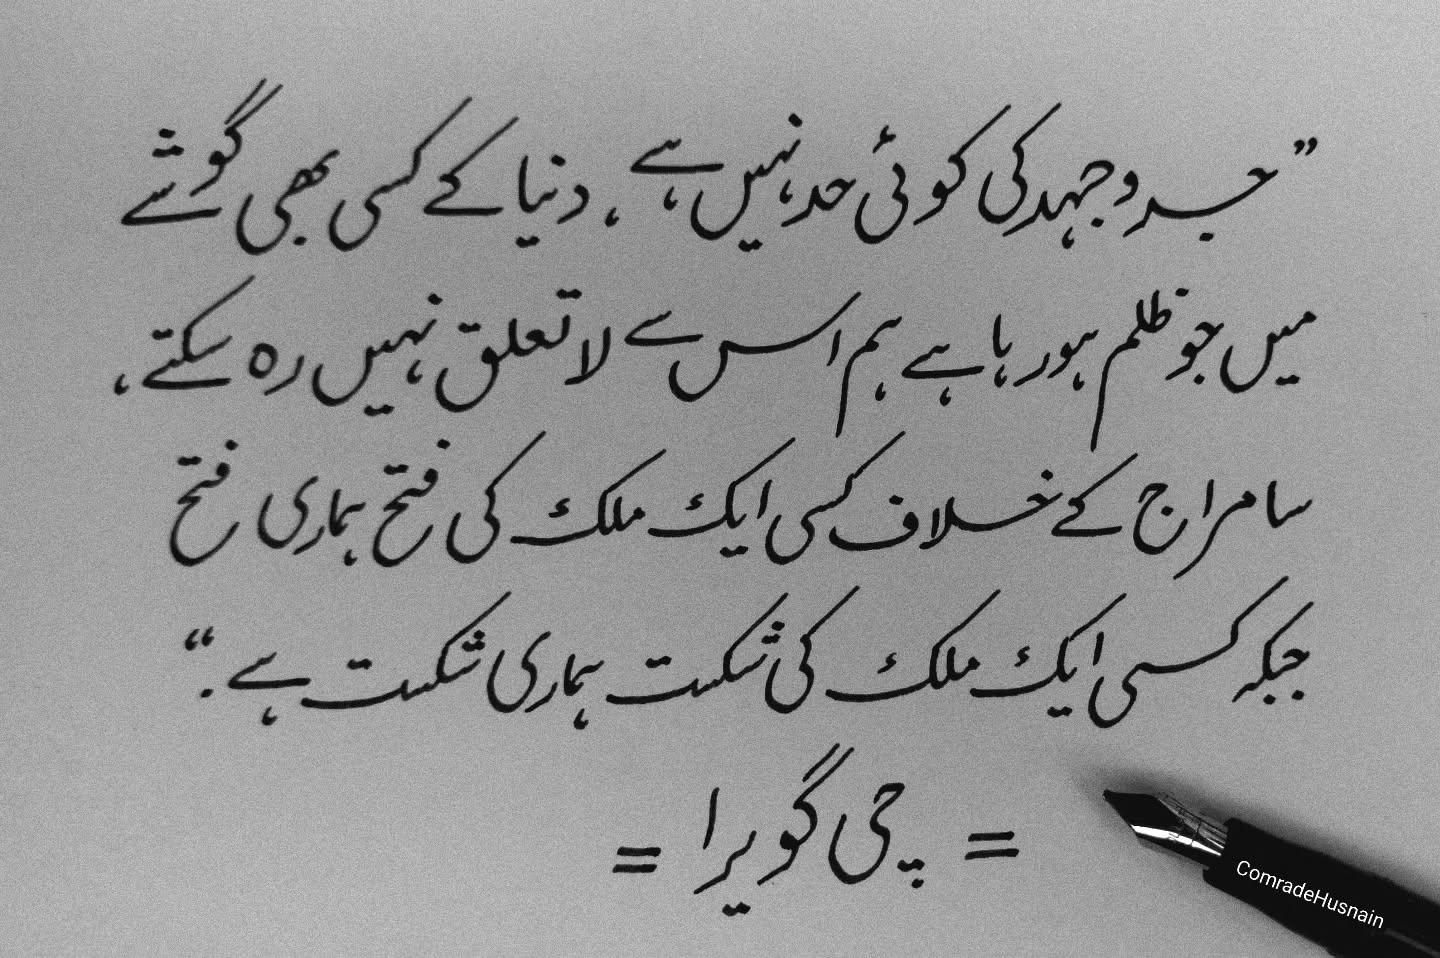 ”جدوجہد کی کوئی حد نہیں ہے ، دنیا کے کسی بھی گوشے
میں جو ظلم ہو رہا ہے ہم اس سے لا تعلق نہیں رہ سکتے ،
سامراج کے خلاف کسی ایک ملک کی فتح ہماری فتح
جبکہ کسی ایک ملک کی شکست ہماری شکست ہے ۔“
= چی گویرا =
ComradeHusnain